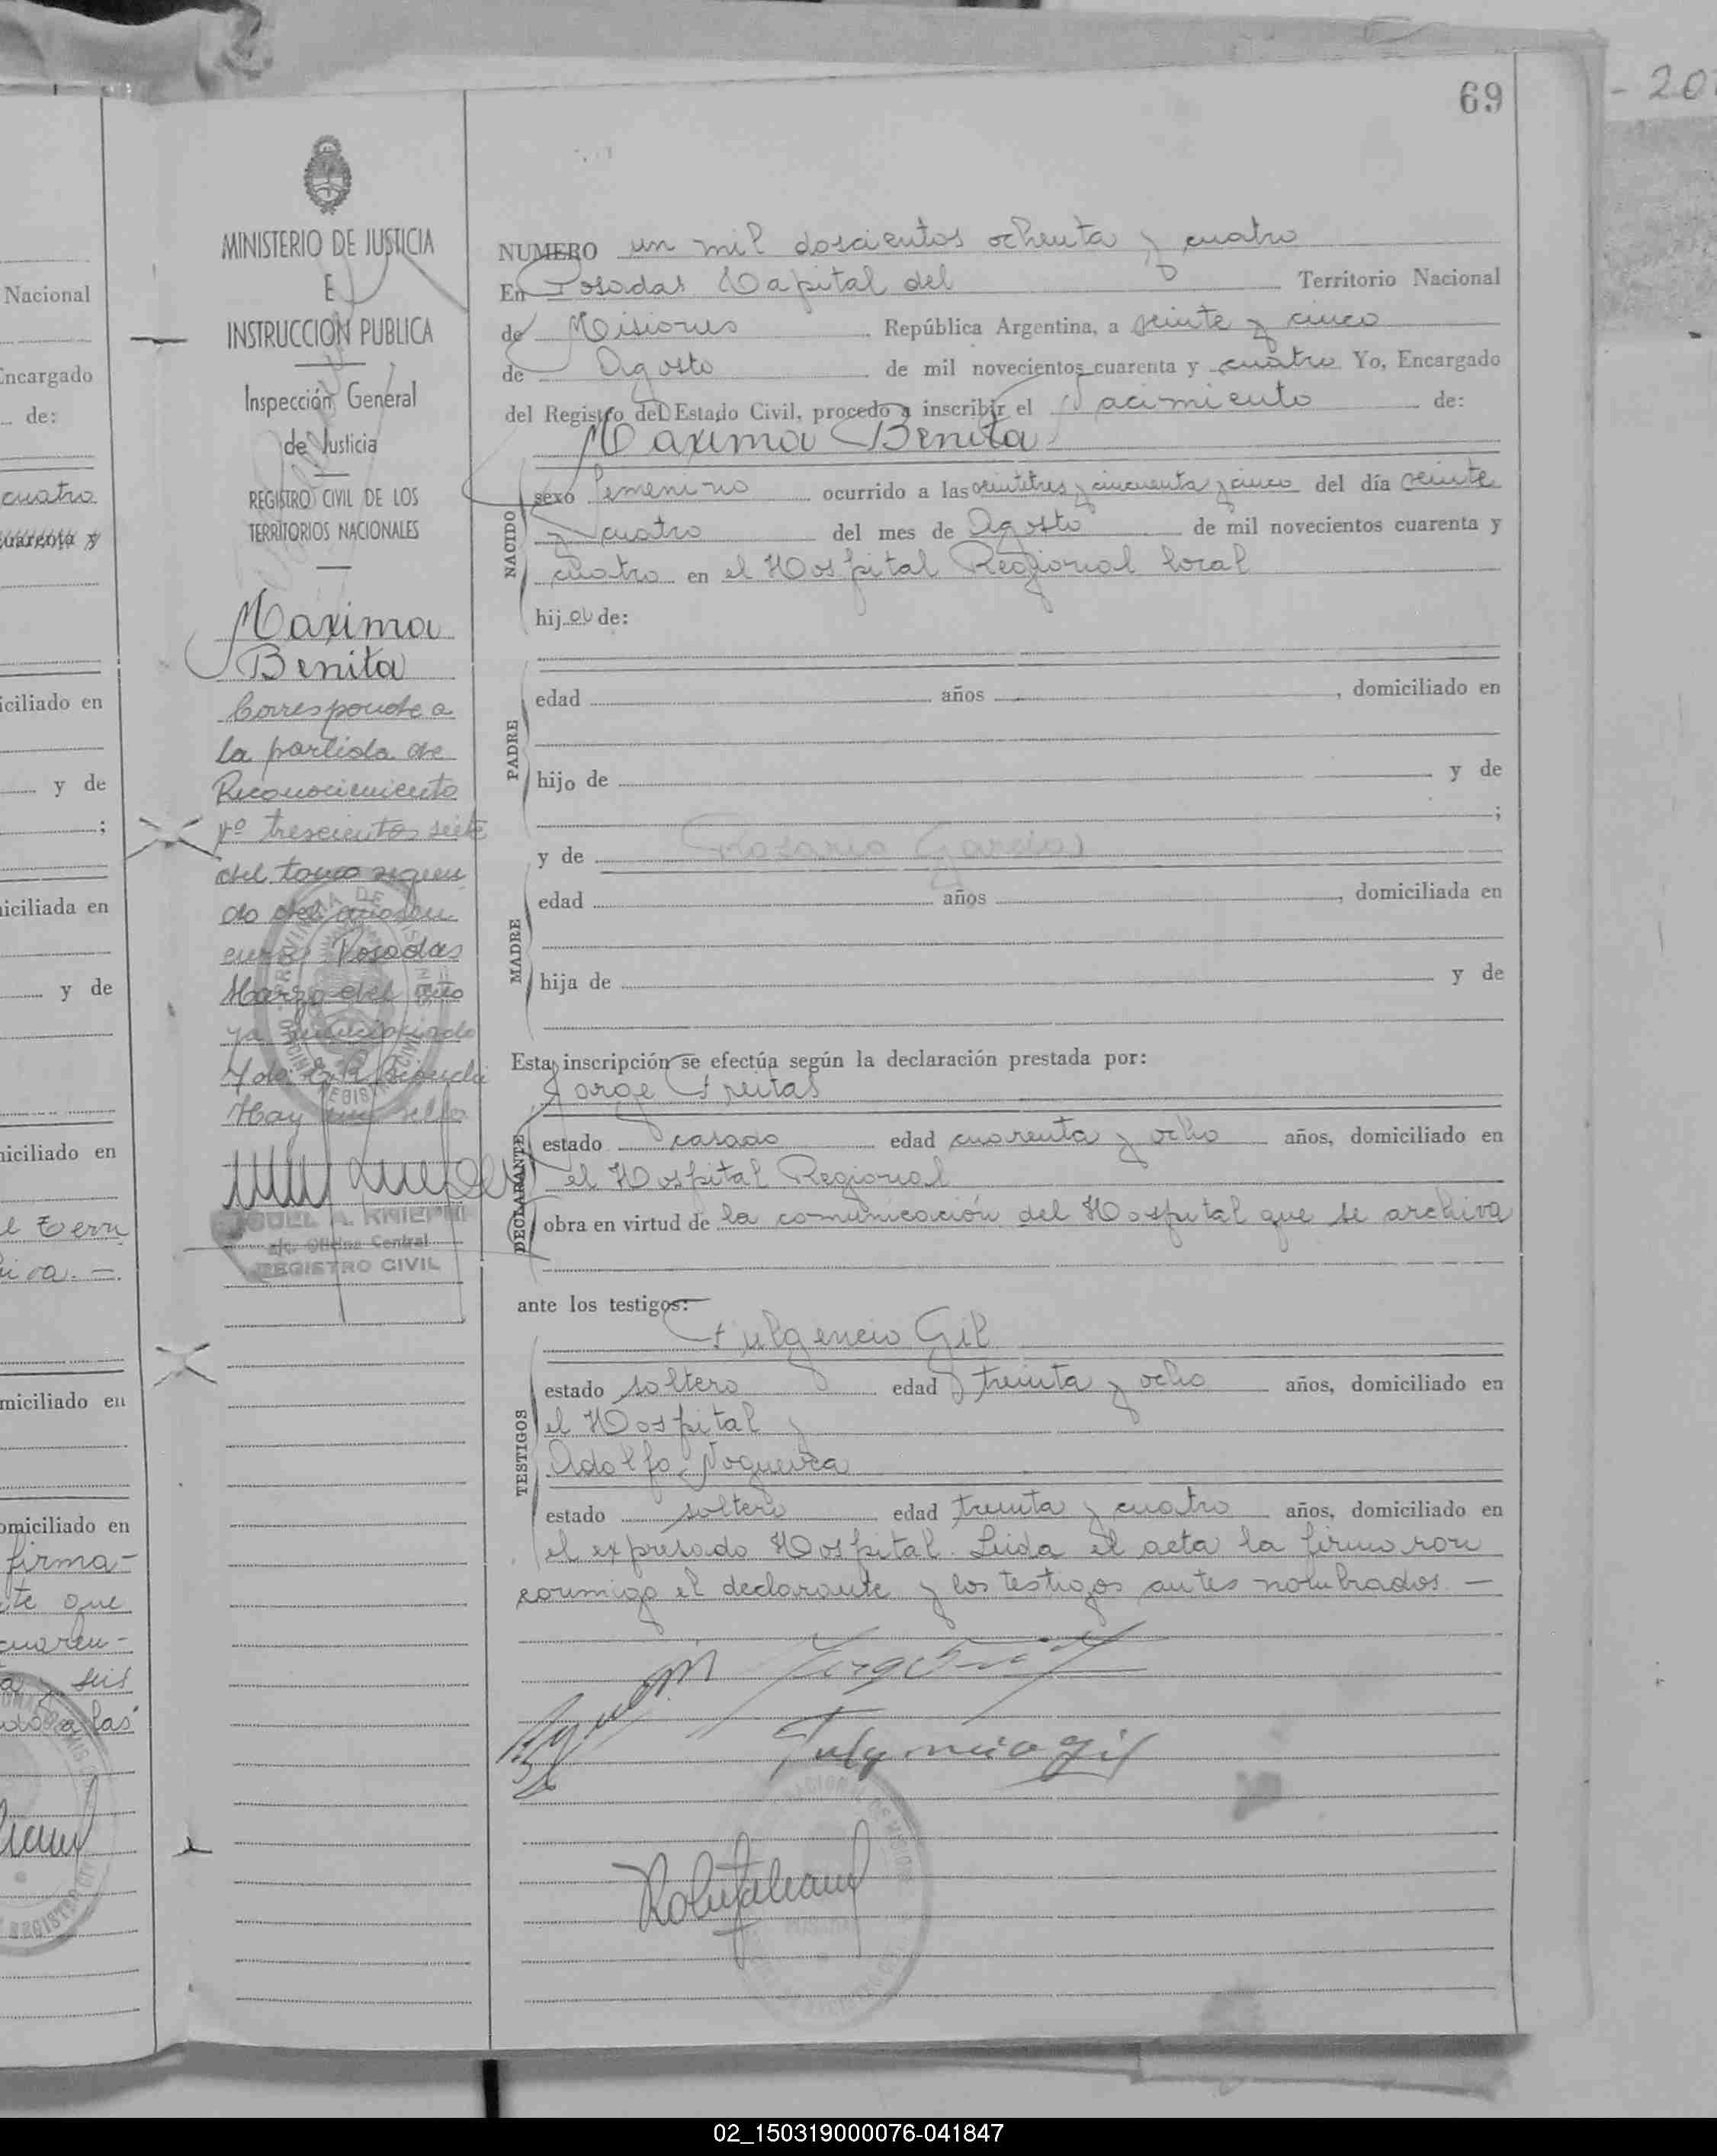 69
- 20
MINISTERIO DE JUSTICIA
E
INSTRUCCION PUBLICA
Inspección General
de Justicia
REGISTRO CIVIL DE LOS
TERRITORIOS NACIONALES
Maxima
Benita
Corresponde a
la partida de
Reconocimiento
Nº trescientos siete
del tomo segun
do del año
Posadas
Marzo del
ya
Hay un sello
MIGUEL A. KNIEPHI
a/c. Oficina Central
REGISTRO CIVIL
NUMERO un mil doscientos ochenta y cuatro
En Posadas Capital del Territorio Nacional
de Misiones República Argentina, a veinte y cinco
de Agosto de mil novecientos cuarenta y cuatro Yo, Encargado
del Registro del Estado Civil, procedo a inscribir el Nacimiento de:
Maxima Benita
NACIDO
sexo femenino ocurrido a las veintitres y cincuenta y cinco del día veinte
y cuatro del mes de Agosto de mil novecientos cuarenta y
cuatro en el Hospital Regional local
hija de:
PADRE
edad años , domiciliado en
hijo de y de
;
y de Rosario Garcia
MADRE
edad años , domiciliada en
hija de y de
Esta inscripción se efectúa según la declaración prestada por:
Jorge Freitas
DECLARANTE
estado casado edad cuarenta y ocho años, domiciliado en
el Hospital Regional
obra en virtud de la comunicación del Hospital que se archiva
ante los testigos:
Fulgencio Gil
TESTIGOS
estado soltero edad treinta y ocho años, domiciliado en
el Hospital y
Adolfo Nogueira
estado soltero edad treinta y cuatro años, domiciliado en
el expresado Hospital. Leida el acta la firmaron
conmigo el declarante y los testigos antes nombrados —
Fulgencio Gil
Nacional
Encargado
de:
cuatro
cuarenta y
iciliado en
y de
;
iciliada en
y de
iciliado en
miciliado en
omiciliado en
firma-
te que
cuaren-
seis
a las
02_150319000076-041847